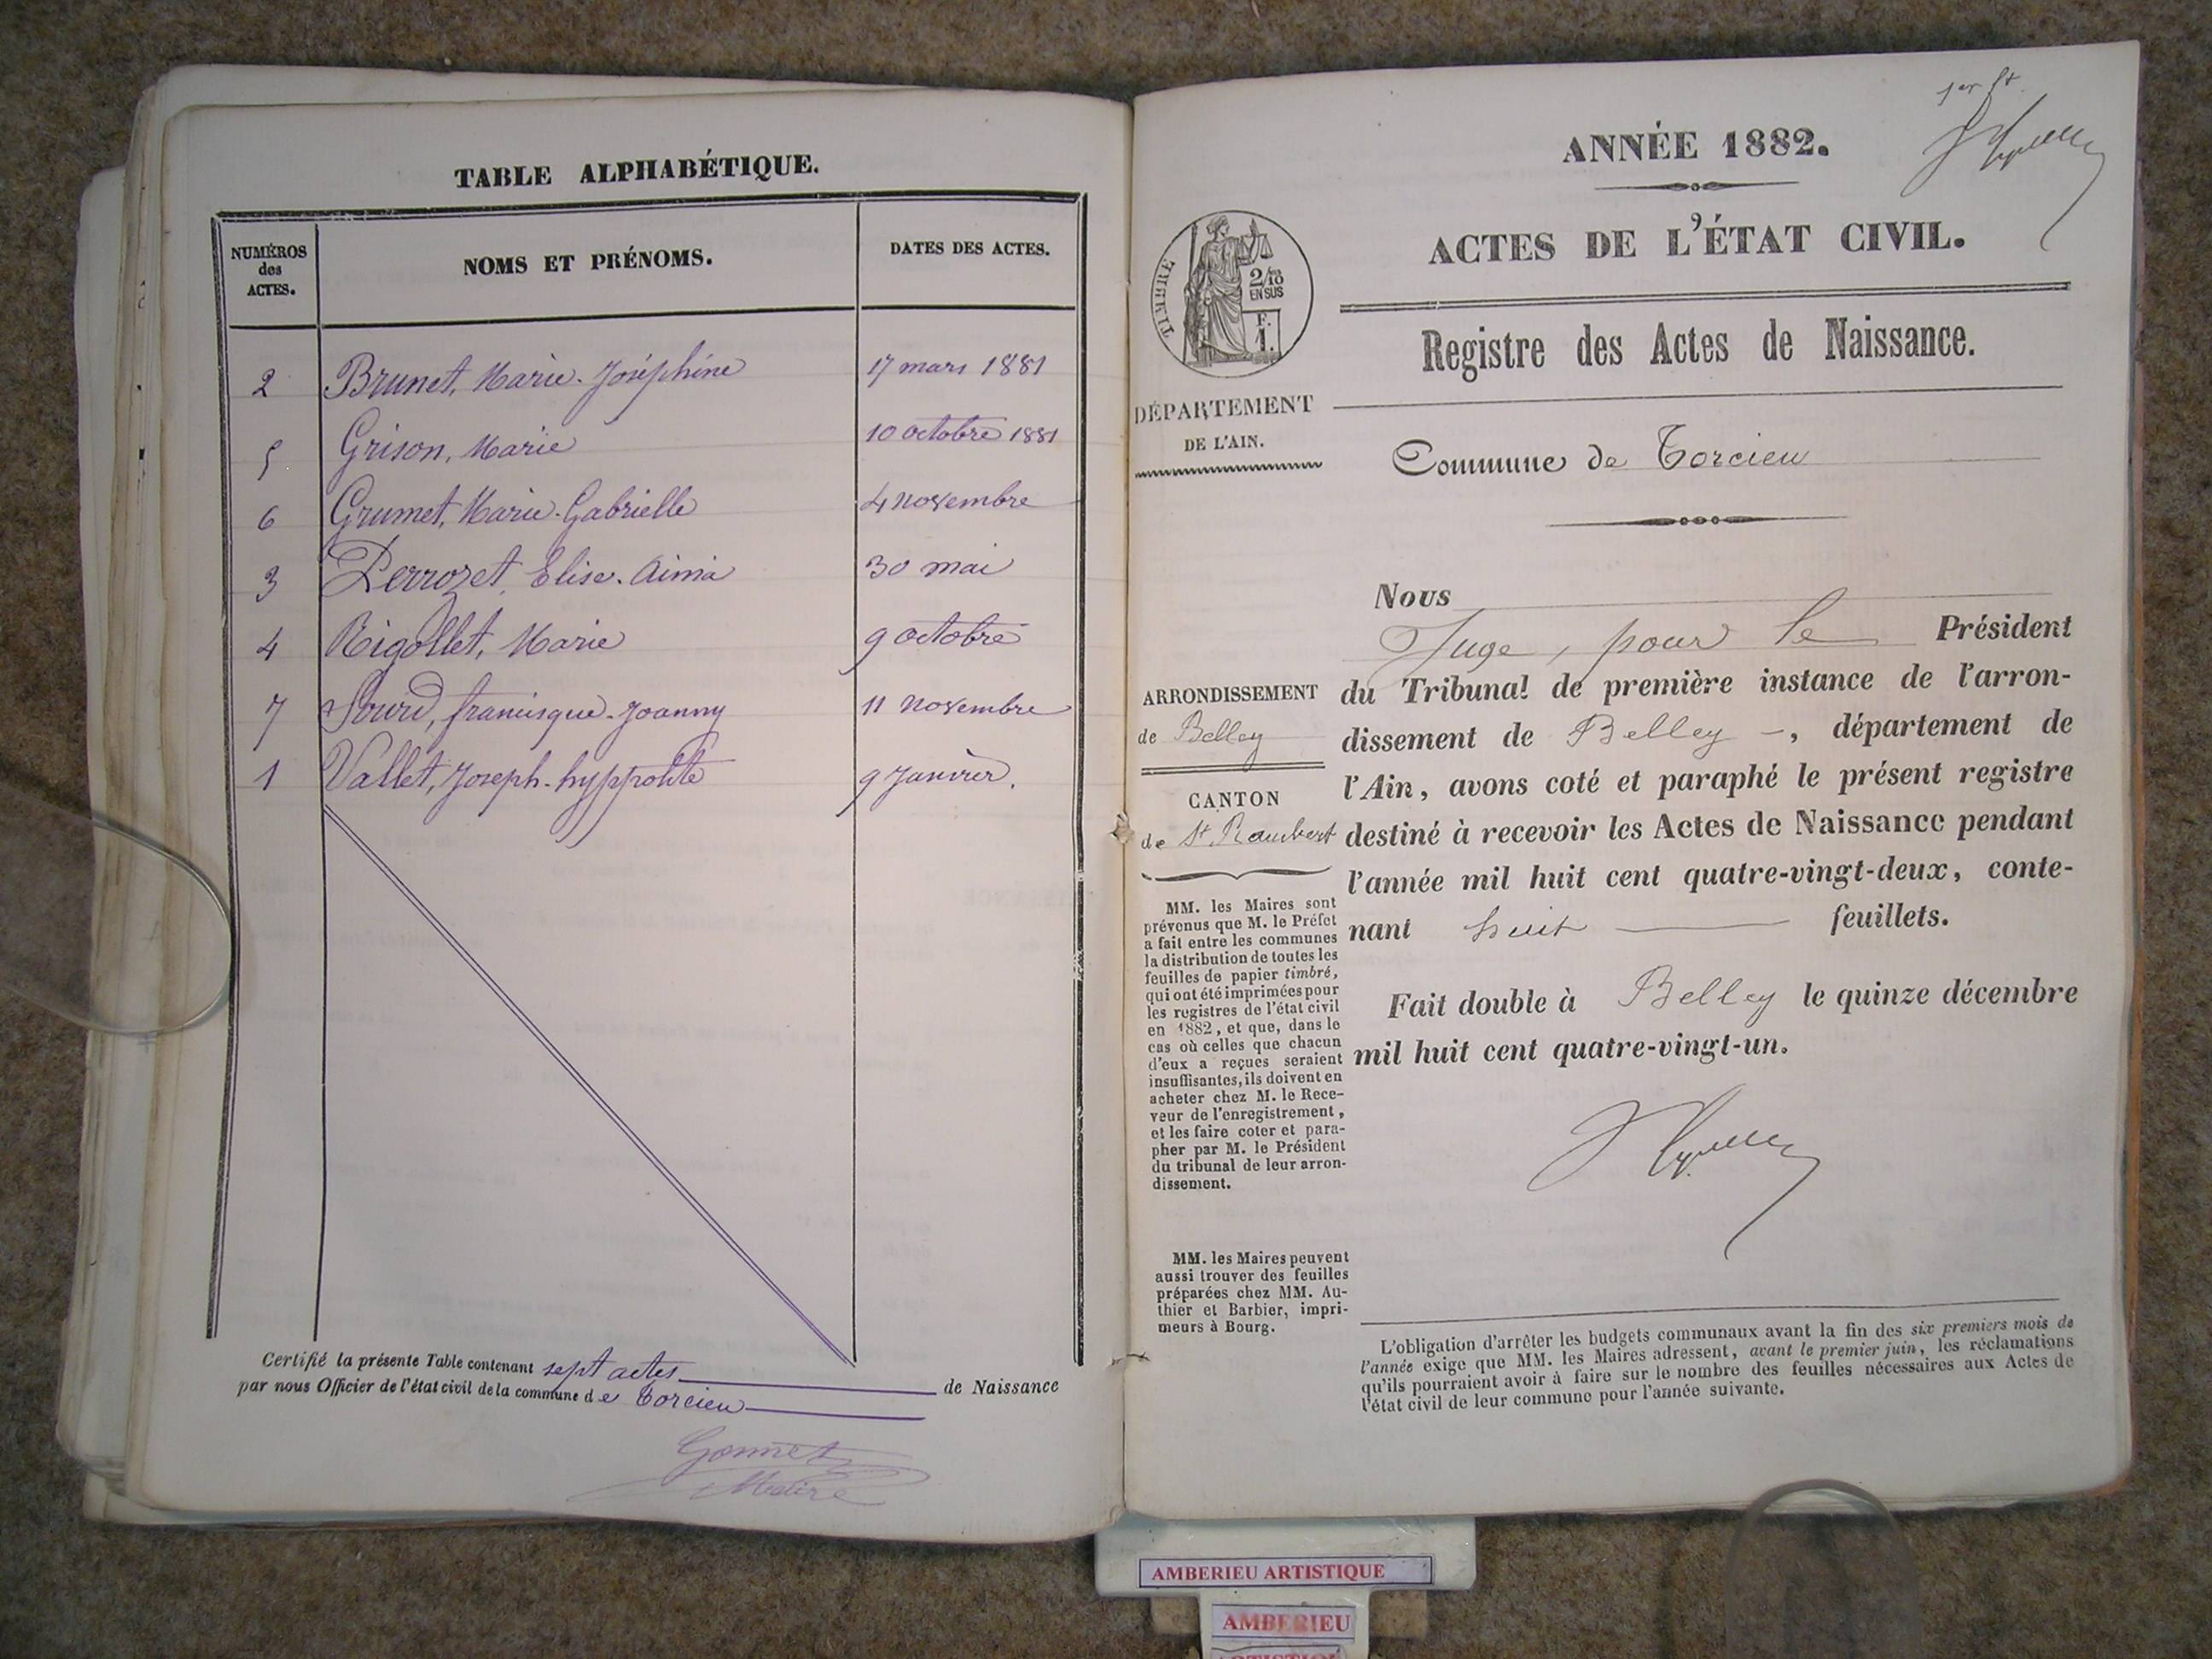 TABLE ALPHABÉTIQUE.
NUMÉROS des ACTES.
NOMS ET PRÉNOMS.
DATES DES ACTES.
2 Brunet, Marie-Joséphine 17 mars 1881
5 Grison, Marie 10 octobre 1881
6 Grumet, Marie-Gabrielle 4 novembre
3 Perrozet, Elise-Aima 30 mai
4 Rigollet, Marie 9 octobre
7 Sourd, francisque-Joanny 11 novembre
1 Vallet, Joseph-hyppolite 9 Janvier.
Certifié la présente Table contenant sept actes de Naissance
par nous Officier de l'état civil de la commune de Torcieu
Gonnet
Maire
1er ft
ANNÉE 1882.
ACTES DE L'ÉTAT CIVIL.
TIMBRE
2/10
EN SUS
F.
1.
Registre des Actes de Naissance.
DÉPARTEMENT
DE L'AIN.
Commune de Torcieu
Nous
Juge, pour le Président
du Tribunal de première instance de l'arron-
dissement de Belley -, département de
l'Ain, avons coté et paraphé le présent registre
destiné à recevoir les Actes de Naissance pendant
l'année mil huit cent quatre-vingt-deux, conte-
nant huit feuillets.
Fait double à Belley le quinze décembre
mil huit cent quatre-vingt-un.
ARRONDISSEMENT
de Belley
CANTON
de St Rambert
MM. les Maires sont
prévenus que M. le Préfet
a fait entre les communes
la distribution de toutes les
feuilles de papier timbré,
qui ont été imprimées pour
les registres de l'état civil
en 1882, et que, dans le
cas où celles que chacun
d'eux a reçues seraient
insuffisantes, ils doivent en
acheter chez M. le Rece-
veur de l'enregistrement,
et les faire coter et para-
pher par M. le Président
du tribunal de leur arron-
dissement.
MM. les Maires peuvent
aussi trouver des feuilles
préparées chez MM. Au-
thier et Barbier, impri-
meurs à Bourg.
L'obligation d'arrêter les budgets communaux avant la fin des six premiers mois de
l'année exige que MM. les Maires adressent, avant le premier juin, les réclamations
qu'ils pourraient avoir à faire sur le nombre des feuilles nécessaires aux Actes de
l'état civil de leur commune pour l'année suivante.
AMBERIEU ARTISTIQUE
AMBERIEU
ARTISTIQUE